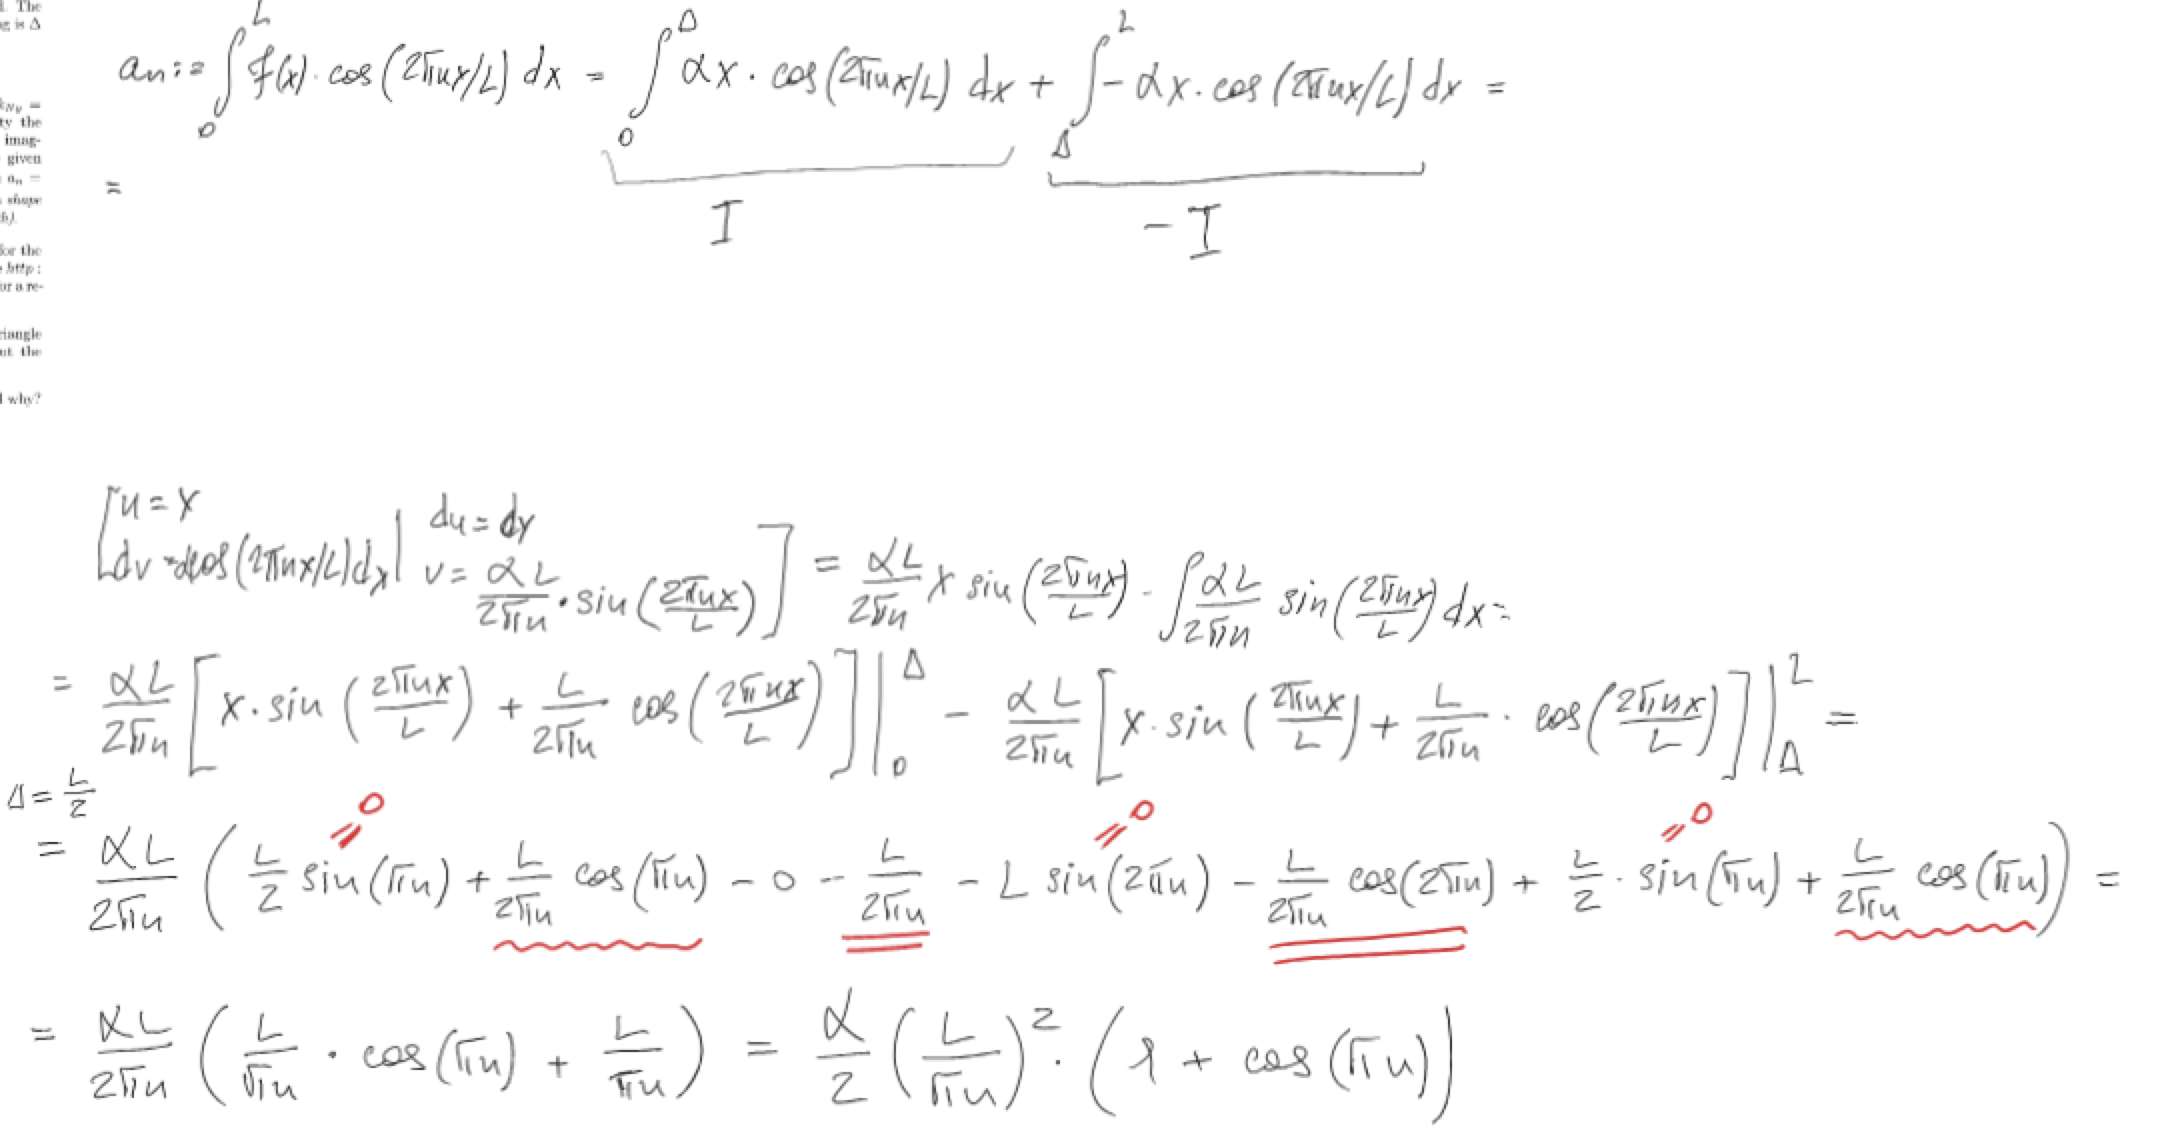 l. The
g is Δ
k_{Ny} =
ty the
imag-
given
a_n =
shape
h).
for the
http :
or a re-
riangle
ut the
l why?
an := ∫_0^L f(x) · cos(2πnx/L) dx = ∫_0^Δ αx · cos(2πnx/L) dx + ∫_Δ^L -αx · cos(2πnx/L) dx =
=
I
-I
[u = x | du = dx
dv = αcos(2πnx/L)dx | v = αL/2πn · sin(2πnx/L)] = αL/2πn x sin(2πnx/L) - ∫ αL/2πn sin(2πnx/L) dx =
= αL/2πn [x · sin(2πnx/L) + L/2πn cos(2πnx/L)]|_0^Δ - αL/2πn [x · sin(2πnx/L) + L/2πn · cos(2πnx/L)]|_Δ^L =
Δ = L/2
=0 =0 =0
= αL/2πn (L/2 sin(πn) + L/2πn cos(πn) - 0 - L/2πn - L sin(2πn) - L/2πn cos(2πn) + L/2 · sin(πn) + L/2πn cos(πn)) =
= αL/2πn (L/πn · cos(πn) + L/πn) = α/2 (L/πn)^2 · (1 + cos(πn))